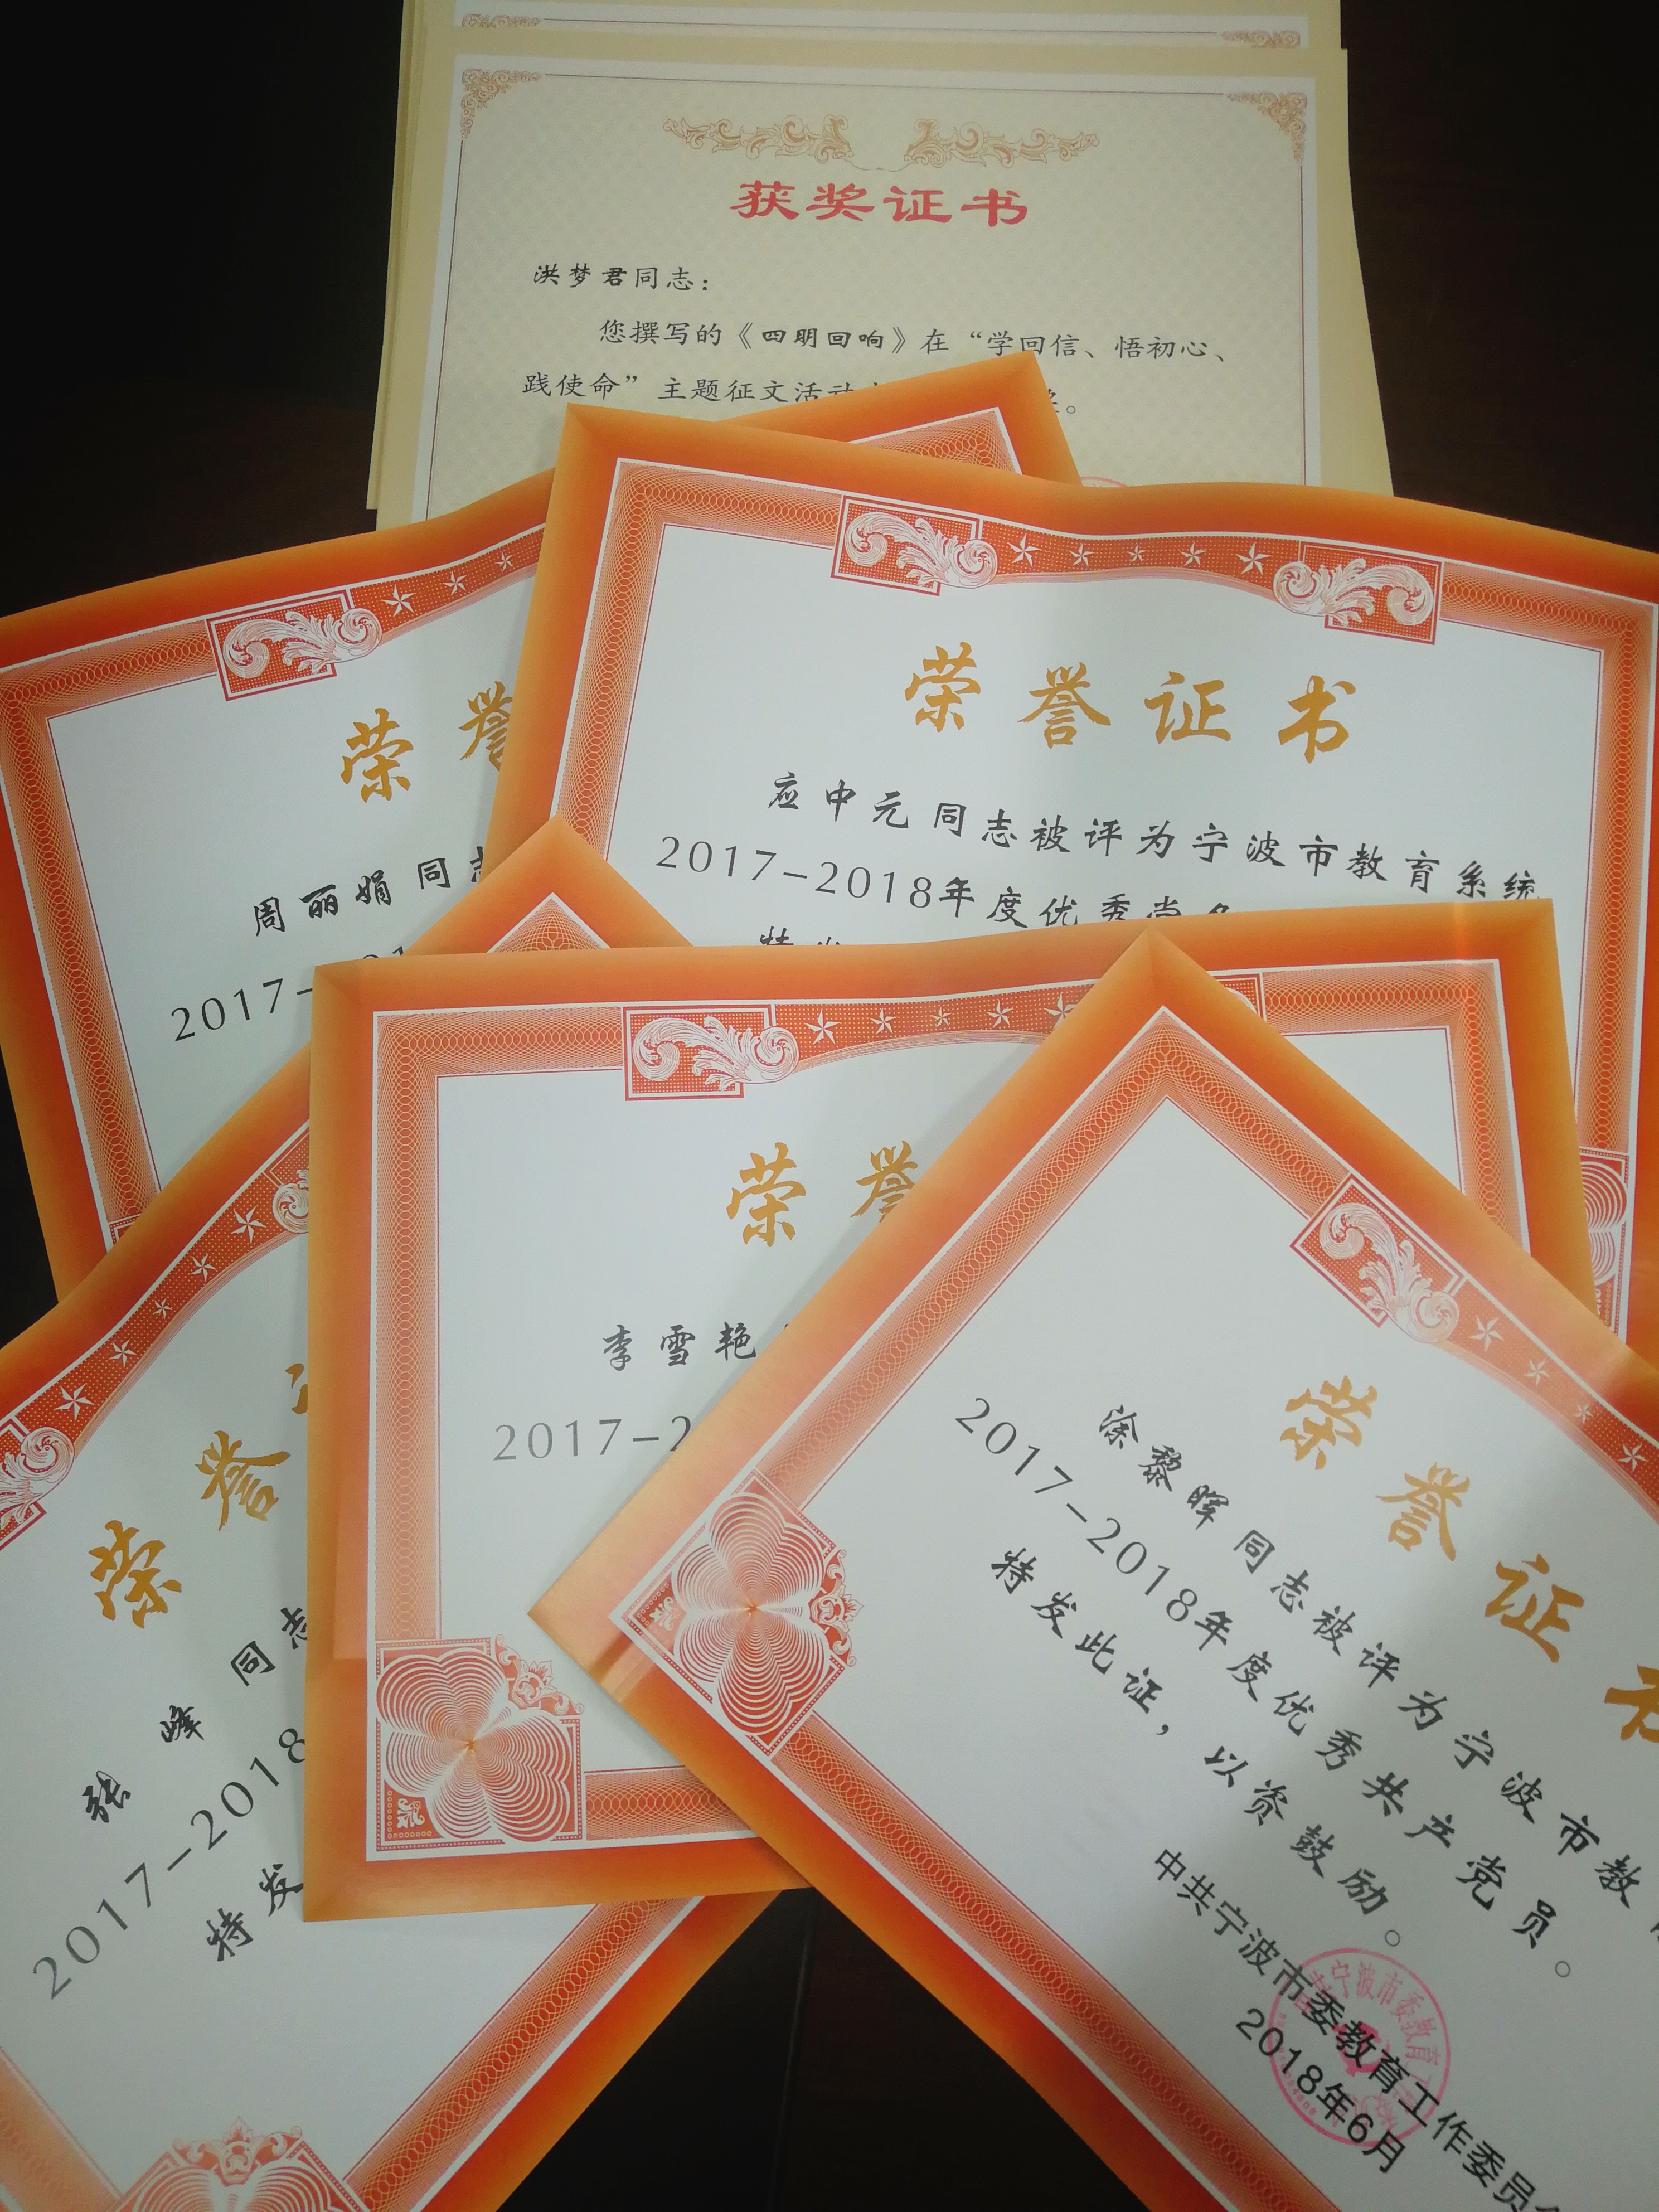 获奖证书
洪梦君同志：
您撰写的《四明回响》在“学回信、悟初心、
践使命”主题征文活动
。
荣誉
周丽娟 同志
2017-
荣誉证书
应中元 同志被评为宁波市教育系统
2017-2018年度优秀党务
特发
荣誉
张峰 同志
2017-2018
特发
荣誉
李雪艳
2017-2
荣誉证书
涂黎晖 同志被评为宁波市教
2017-2018年度优秀共产党员。
特发此证，以资鼓励。
中共宁波市委教育工作委员会
2018年6月
宁波市委教育